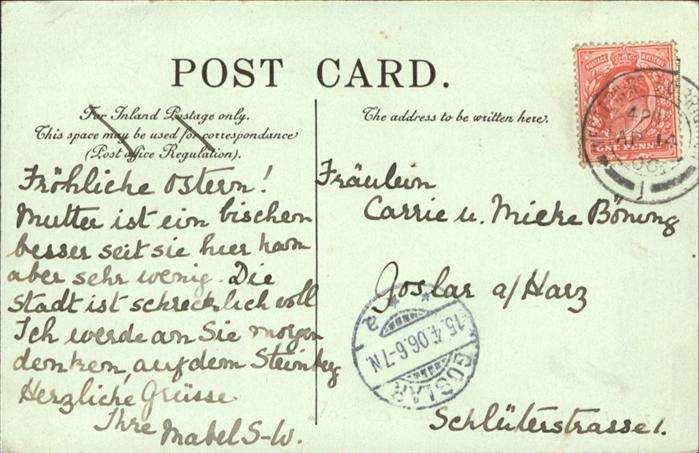 POST CARD.
For Inland Postage only.
This space may be used for correspondence
(Post office Regulation).
The address to be written here.
Fröhliche Ostern!
Mutter ist ein bischen
besser seit sie hier kam
aber sehr wenig. Die
Stadt ist schrecklich voll
Ich werde an Sie morgen
denken, auf dem Steinberg
Herzliche Grüsse
Ihre Mabel S-W.
Fräulein
Carrie u. Mieke Bönung
Goslar a/Harz
Schlüterstrasse 1.
ONE PENNY
AP 13
06
1
GOSLAR
15.4.06.6-7N
a